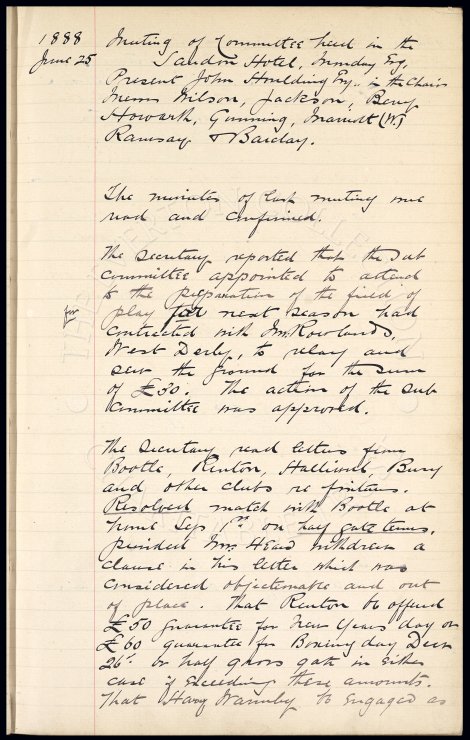 1888
June 25
Meeting of Committee held in the
Sandon Hotel, Monday Evg.
Present John Houlding Esq. in the Chair
Messrs Wilson, Jackson, Berry
Howarth, Gunning, Marriott (W.)
Ramsay & Barclay.
The minutes of last meeting were
read and confirmed.
The Secretary reported that the Sub
Committee appointed to attend
to the preparation of the field of
play for next season had
contracted with Mr. Rowlands,
West Derby, to relay and
sew the ground for the sum
of £30. The action of the sub
Committee was approved.
The Secretary read letters from
Bootle, Renton, Halliwell, Bury
and other clubs re fixtures.
Resolved match with Bootle at
home Sep 1st on half gate terms,
provided Mr. Head withdrew a
clause in his letter which was
considered objectionable and out
of place. That Renton be offered
£50 guarantee for New Years day or
£60 guarantee for Boxing day Decr
26th or half gross gate in either
case if exceeding these amounts.
That Harry Warmby be engaged as